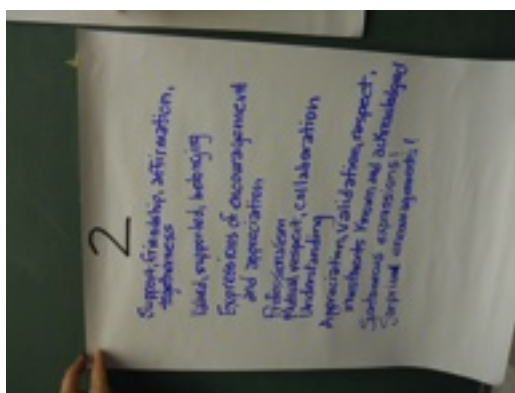 2
Support, friendship, affirmation,
togetherness
Valued, supported, belonging
Expressions of encouragement
and appreciation
Professionalism
Mutual respect, collaboration
Understanding
Appreciation, validation, respect,
known and acknowledged
Spontaneous expressions!
Surprised encouragements!